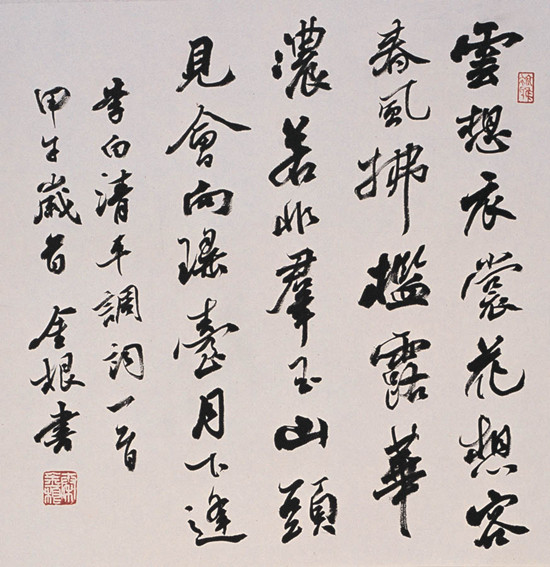 雲想衣裳花想容
春風拂檻露華
濃若非羣玉山頭
見會向瑤臺月下逢
李白清平調詞一首
甲午歲首金娘書